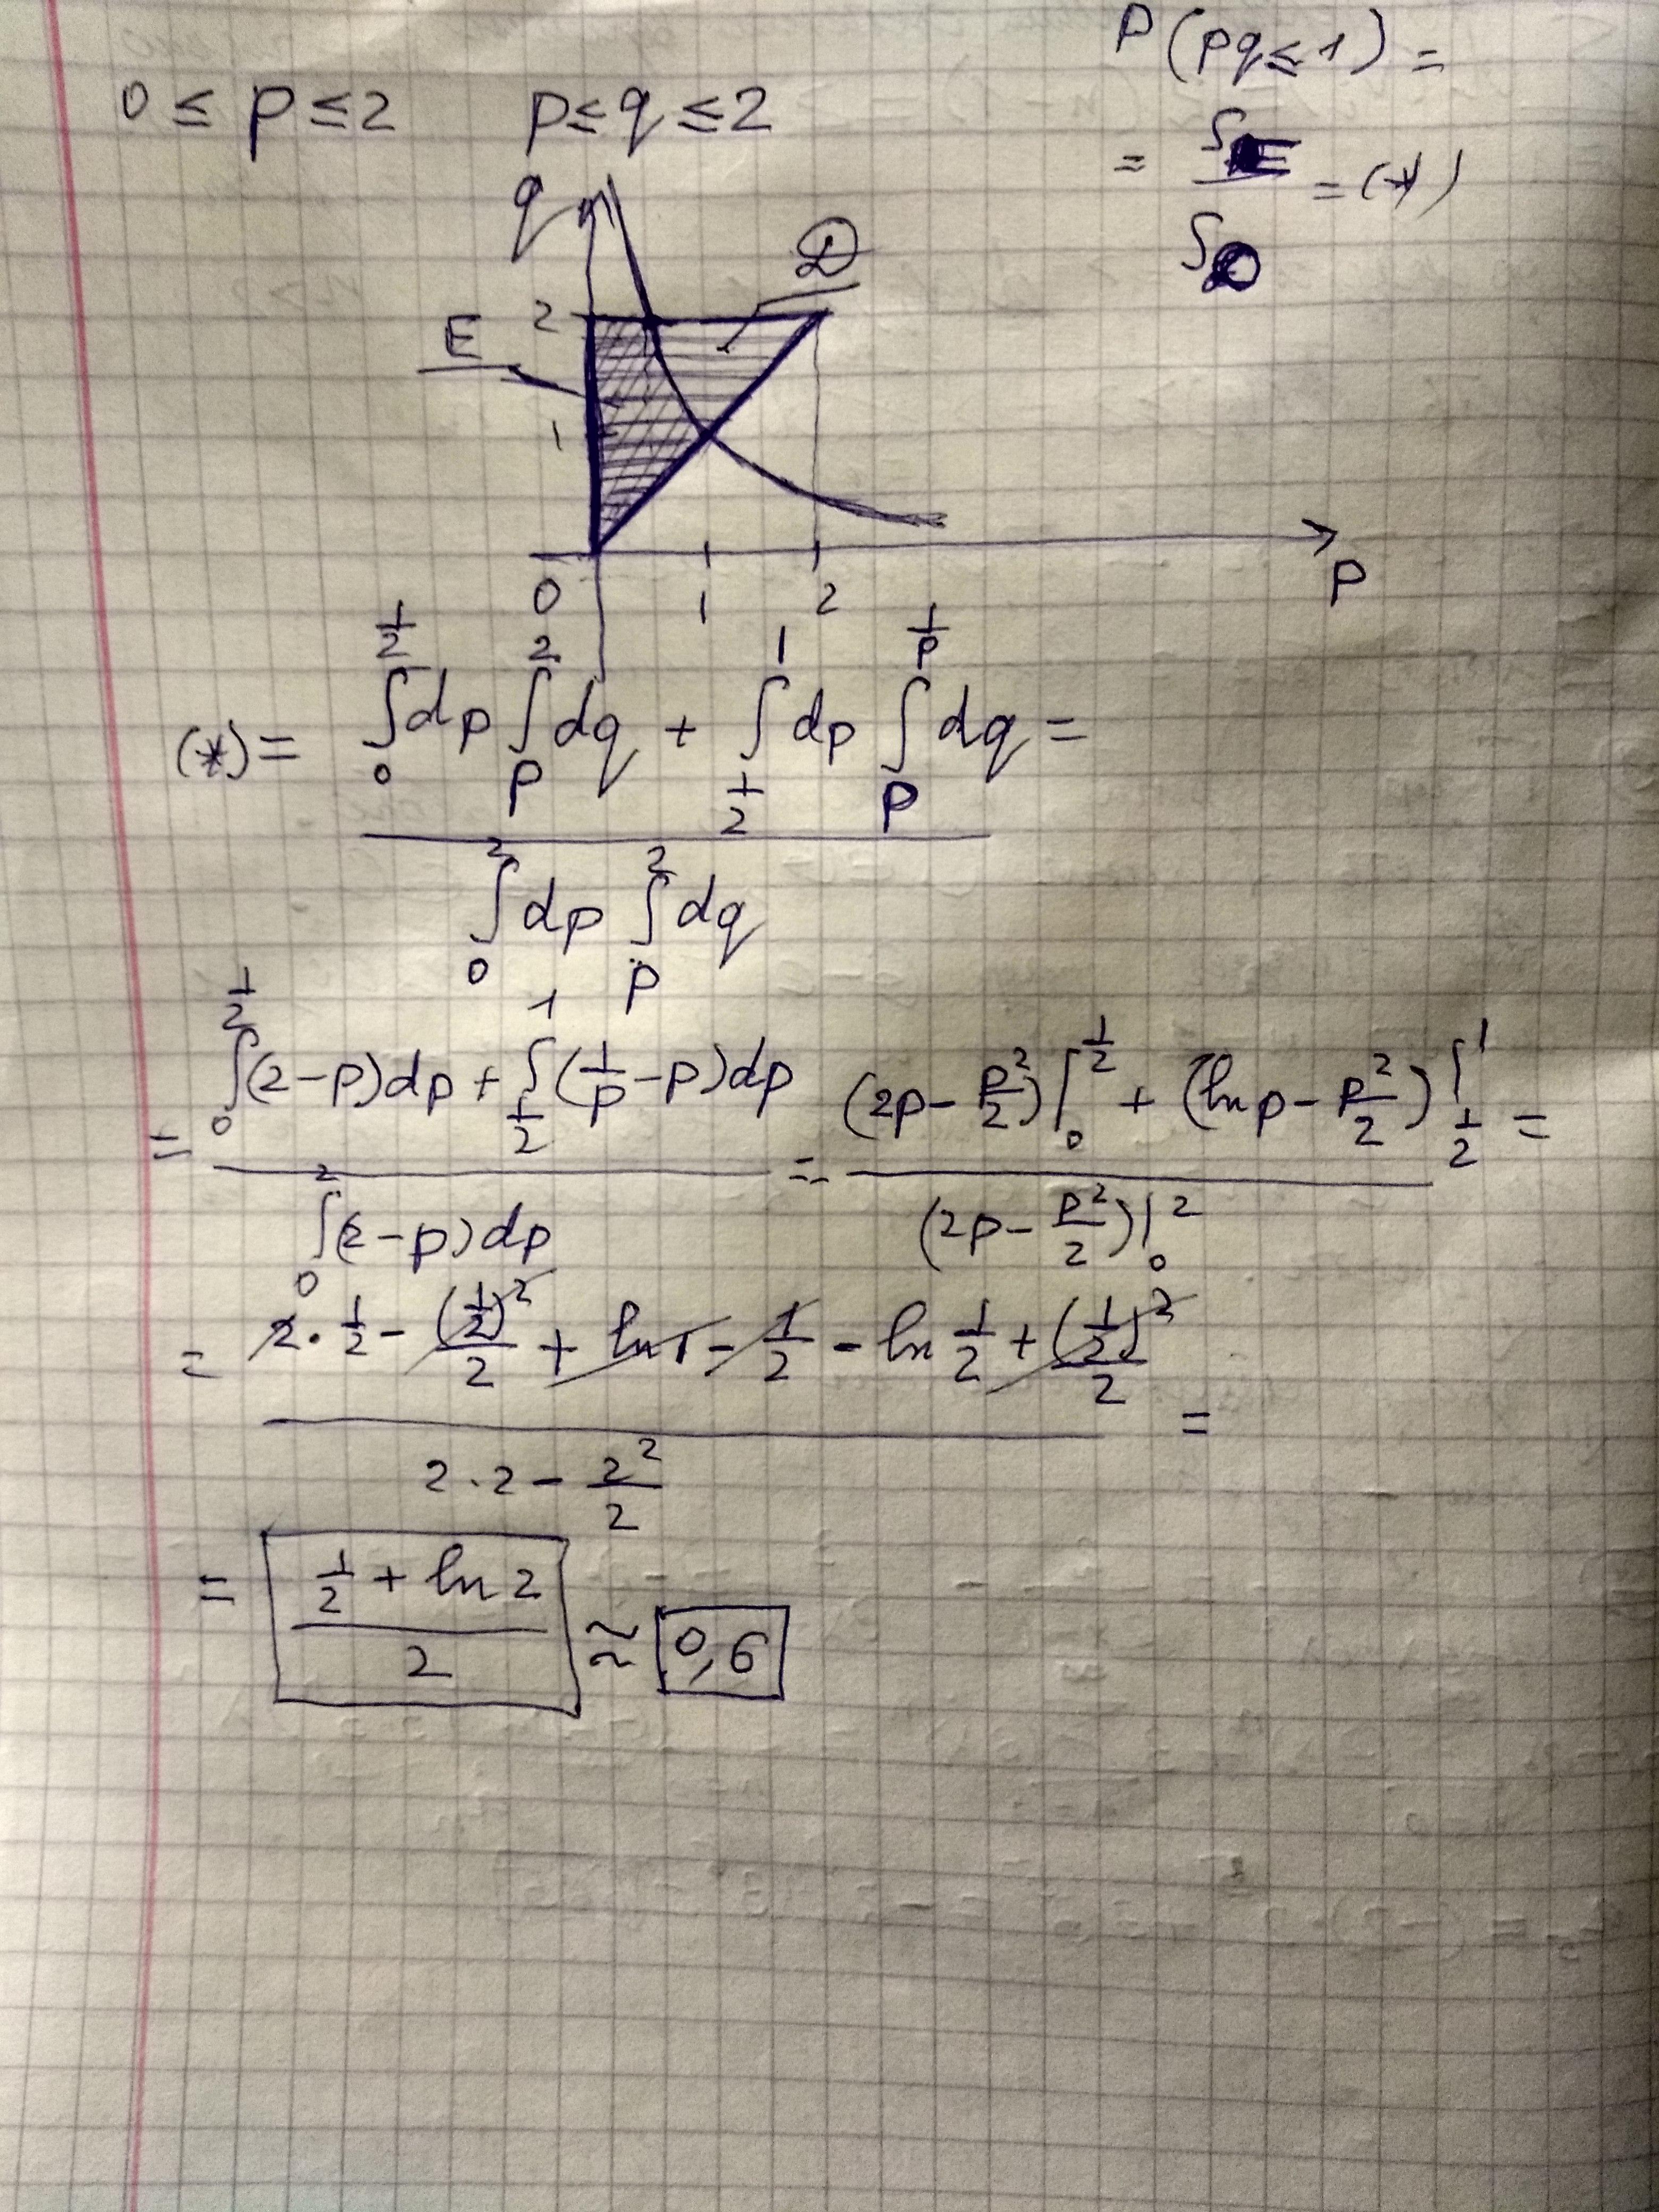 0 ≤ p ≤ 2 p ≤ q ≤ 2
P(pq ≤ 1) =
= S_E / S_D = (*)
q
D
2
E
1
0 1 2 p
(*) = (∫_0^{1/2} dp ∫_p^2 dq + ∫_{1/2}^1 dp ∫_p^{1/p} dq) / (∫_0^2 dp ∫_p^2 dq) =
= (∫_0^{1/2} (2-p)dp + ∫_{1/2}^1 (1/p - p)dp) / (∫_0^2 (2-p)dp) = ((2p - p²/2)|_0^{1/2} + (ln p - p²/2)|_{1/2}^1) / ((2p - p²/2)|_0^2) =
= (2 · 1/2 - (1/2)²/2 + ln 1 - 1/2 - ln 1/2 + (1/2)²/2) / (2 · 2 - 2²/2) =
= (1/2 + ln 2) / 2 ≈ 0,6